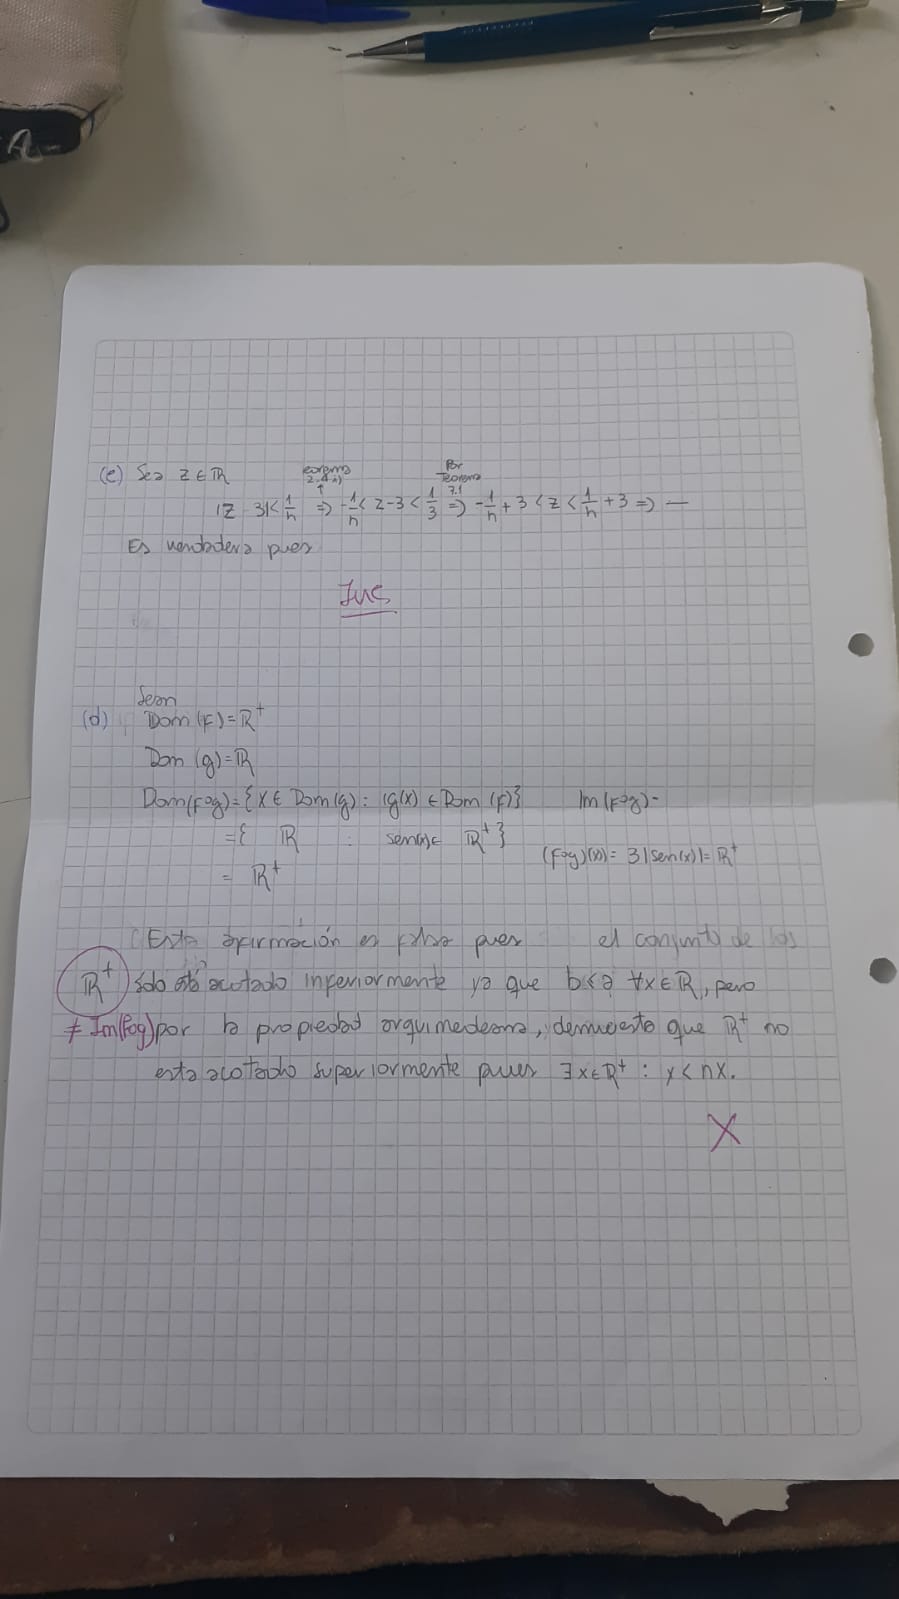 (e) Sea z ∈ ℝ
teorema 2.4.a)
↑
Por Teorema 7.1
|z 3|< 1/n ⇒ -1/n < z-3 < 1/3 ⇒ -1/n + 3 < z < 1/n + 3 ⇒ —
Es verdadera pues
Inc
Sean
(d) Dom (f) = ℝ⁺
Dom (g) = ℝ
Dom(f∘g) = {x ∈ Dom(g) : g(x) ∈ Dom (f)} Im (f∘g) =
= { ℝ : sen(x) ∈ ℝ⁺ }
(f∘g)(x) = 3|sen(x)| = ℝ⁺
= ℝ⁺
Esta afirmación es falsa pues el conjunto de los
ℝ⁺ sólo está acotado inferiormente ya que b≤a ∀x∈ℝ, pero
≠ Im(fog) por la propiedad arquimedeana, demuestra que ℝ⁺ no
esta acotado superiormente pues ∃x∈ℝ⁺ : y < nx.
X